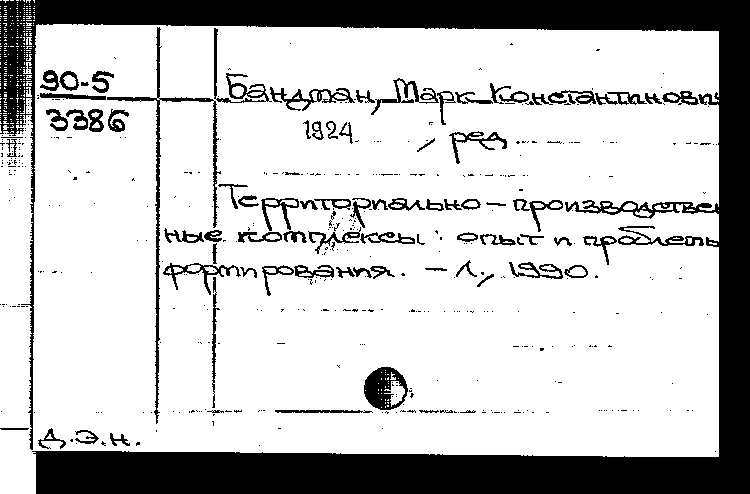 90-5
3386
Бандман, Марк Константинови
1924
, ред.
Территориально-производствен
ные комплексы: опыт и проблемы
формирования. - Л., 1990.
Д.Э.Н.